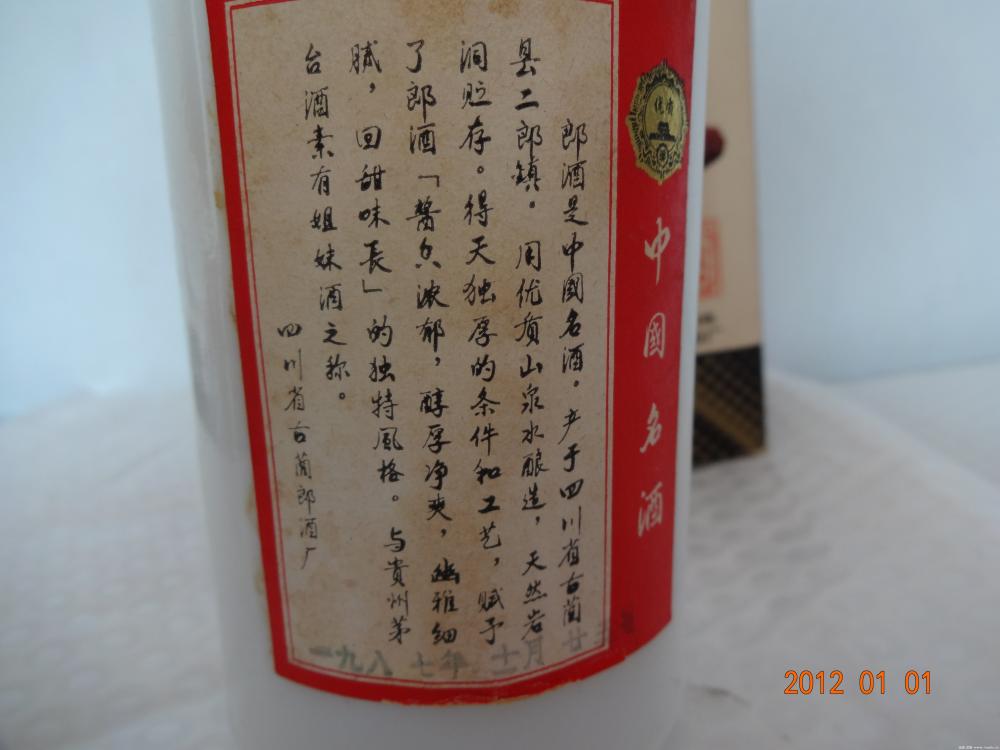 郎酒是中國名酒。产于四川省古蔺
县二郎镇。用优质山泉水酿造，天然岩
洞贮存。得天独厚的条件和工艺，赋予
了郎酒「醬香浓郁，醇厚净爽，幽雅细
腻，回甜味長」的独特風格。与貴州茅
台酒素有姐妹酒之称。
四川省古蔺郎酒厂
一九八七年十一月廿三
中國名酒
2012 01 01